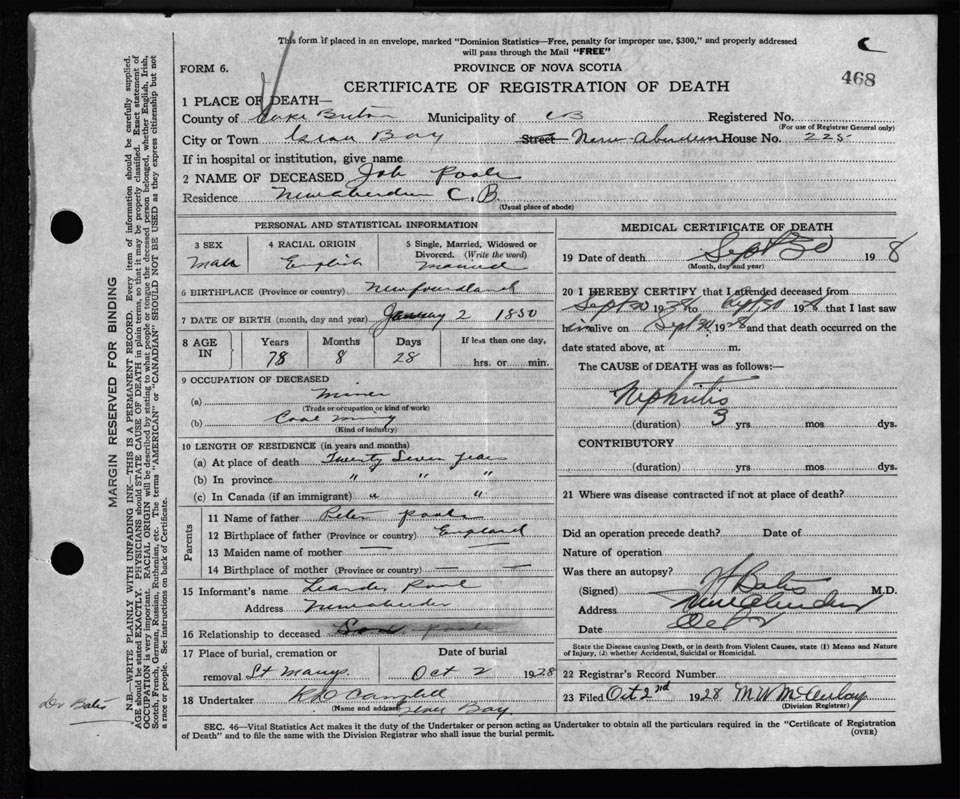 This form if placed in an envelope, marked "Dominion Statistics—Free, penalty for improper use, $300," and properly addressed
will pass through the Mail "FREE"
FORM 6. PROVINCE OF NOVA SCOTIA
468
CERTIFICATE OF REGISTRATION OF DEATH
1 PLACE OF DEATH—
County of Cape Breton Municipality of CB Registered No.
(For use of Registrar General only)
City or Town Glace Bay Street New Aberdeen House No. 225
If in hospital or institution, give name
2 NAME OF DECEASED Job Poole
Residence New Aberdeen C.B.
(Usual place of abode)
PERSONAL AND STATISTICAL INFORMATION
3 SEX 4 RACIAL ORIGIN 5 Single, Married, Widowed or
Divorced. (Write the word)
Male English Married
6 BIRTHPLACE (Province or country) Newfoundland
7 DATE OF BIRTH (month, day and year) January 2 1850
8 AGE IN Years Months Days If less than one day,
78 8 28 hrs. or min.
9 OCCUPATION OF DECEASED
(a) Miner
(Trade or occupation or kind of work)
(b) Coal mining
(Kind of industry)
10 LENGTH OF RESIDENCE (in years and months)
(a) At place of death Twenty Seven years
(b) In province " " "
(c) In Canada (if an immigrant) " "
Parents
11 Name of father Peter Poole
12 Birthplace of father (Province or country) England
13 Maiden name of mother — —
14 Birthplace of mother (Province or country) — —
15 Informant's name Leander Poole
Address New Aberdeen
16 Relationship to deceased Son
17 Place of burial, cremation or Date of burial
removal St Marys Oct 2 1928
18 Undertaker Campbell
(Name and address) Glace Bay
MEDICAL CERTIFICATE OF DEATH
19 Date of death Sept 30 19 8
(Month, day and year)
20 I HEREBY CERTIFY that I attended deceased from
Sept 30 1928 to Sept 30 1928 that I last saw
him alive on Sept 30 1928 and that death occurred on the
date stated above, at m.
The CAUSE of DEATH was as follows:—
Nephritis
(duration) 3 yrs mos dys.
CONTRIBUTORY
(duration) yrs. mos. dys.
21 Where was disease contracted if not at place of death?
Did an operation precede death? Date of
Nature of operation
Was there an autopsy?
(Signed) Bates M.D.
Address New Aberdeen
Date Oct
State the Disease causing Death, or in death from Violent Causes, state (1) Means and Nature
of Injury, (2) whether Accidental, Suicidal or Homicidal.
22 Registrar's Record Number
23 Filed Oct 2nd 1928 M W McKinlay
(Division Registrar)
SEC. 46—Vital Statistics Act makes it the duty of the Undertaker or person acting as Undertaker to obtain all the particulars required in the "Certificate of Registration
of Death" and to file the same with the Division Registrar who shall issue the burial permit.
(OVER)
MARGIN RESERVED FOR BINDING
N.B.—WRITE PLAINLY WITH UNFADING INK—THIS IS A PERMANENT RECORD. Every item of information should be carefully supplied.
AGE should be stated EXACTLY. PHYSICIANS should STATE CAUSE OF DEATH in plain terms, so that it may be properly classified. Exact statement of
OCCUPATION is very important. RACIAL ORIGIN will be described by stating to what people or tongue the deceased person belonged, whether English, Irish,
Scotch, French, German, Russian, Ruthenian, etc. The terms "AMERICAN" or "CANADIAN" SHOULD NOT BE USED as they express citizenship but not
a race or people. See instructions on back of Certificate.
Dr Bates